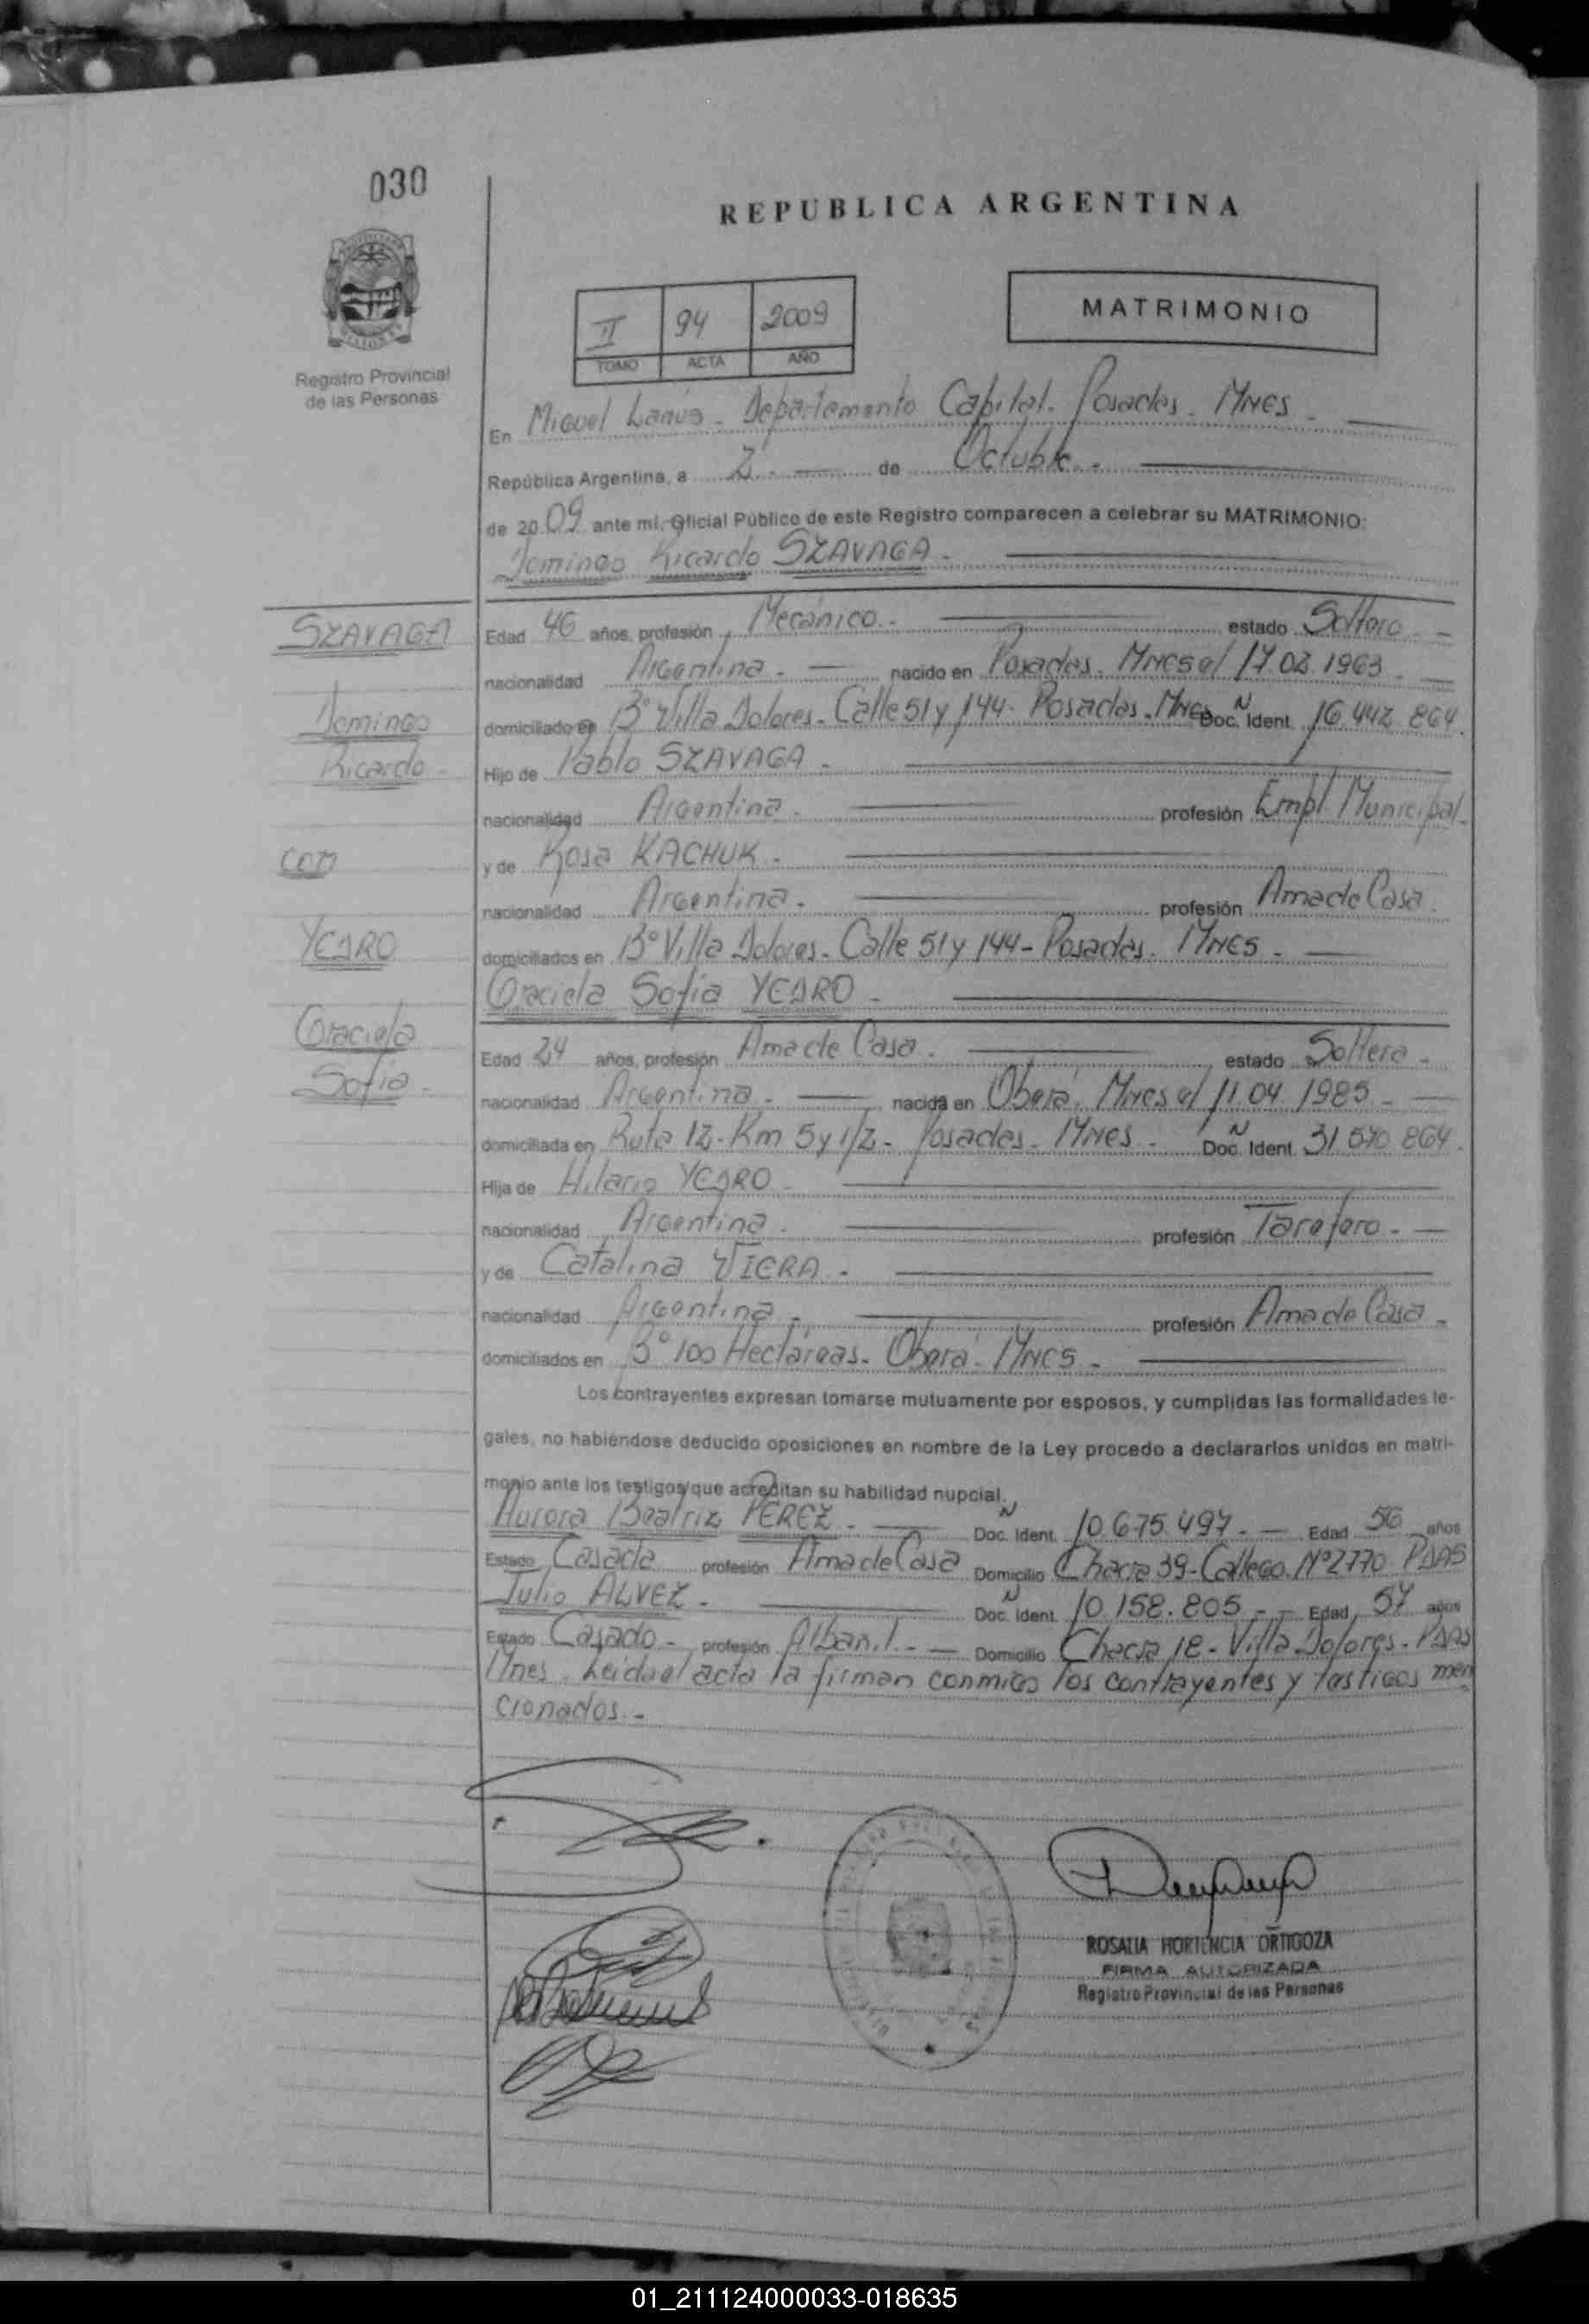 030
REPUBLICA ARGENTINA
Registro Provincial
de las Personas
II 94 2009
TOMO ACTA AÑO
MATRIMONIO
En Miguel Lanús - Departamento Capital - Posadas - Mnes -
República Argentina, a 2 - de Octubre -
de 2009 ante mí, Oficial Público de este Registro comparecen a celebrar su MATRIMONIO:
Domingo Ricardo SZAVAGA -
SZAVAGA
Domingo
Ricardo -
con
YEDRO
Graciela
Sofia -
Edad 46 años, profesión Mecánico - estado Soltero -
nacionalidad Argentina - nacido en Posadas - Mnes el 17.02.1963 -
domiciliado en B° Villa Dolores - Calle 51 y 144 - Posadas - Mnes Doc. N Ident. 16.442.864
Hijo de Pablo SZAVAGA -
nacionalidad Argentina - profesión Empl. Municipal -
y de Rosa KACHUK -
nacionalidad Argentina - profesión Ama de Casa
domiciliados en B° Villa Dolores - Calle 51 y 144 - Posadas - Mnes -
Graciela Sofia YEDRO -
Edad 24 años, profesión Ama de Casa - estado Soltera -
nacionalidad Argentina - nacida en Oberá - Mnes el 11.04.1985 -
domiciliada en Ruta 12 - Km 5 y 1/2 - Posadas - Mnes - Doc. N Ident. 31.570.864
Hija de Hilario YEDRO -
nacionalidad Argentina - profesión Tarefero -
y de Catalina VIERA -
nacionalidad Argentina - profesión Ama de Casa -
domiciliados en B° 100 Hectáreas - Oberá - Mnes -
Los contrayentes expresan tomarse mutuamente por esposos, y cumplidas las formalidades le-
gales, no habiéndose deducido oposiciones en nombre de la Ley procedo a declararlos unidos en matri-
monio ante los testigos que acreditan su habilidad nupcial.
Aurora Beatriz PEREZ - Doc. N Ident. 10.675.497 - Edad 56 años
Estado Casada profesión Ama de Casa Domicilio Chacra 39 - N°2770 PDAS
Julio ALVEZ - Doc. N Ident. 10.158.805 - Edad 57 años
Estado Casado - profesión Albañil - Domicilio Chacra 18 - Villa Dolores - PDAS
Mnes - Leída el acta la firman conmigo los contrayentes y testigos men
cionados -
ROSALIA HORTENCIA ORTIGOZA
FIRMA AUTORIZADA
Registro Provincial de las Personas
01_211124000033-018635